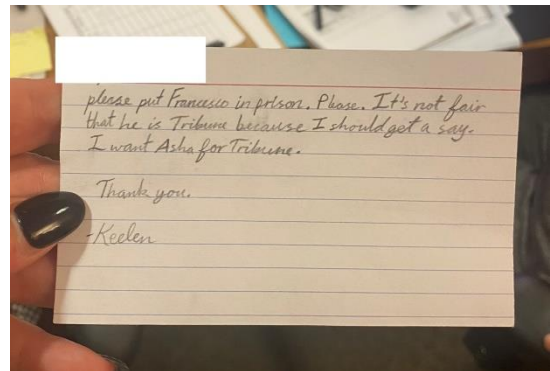 please put Francesco in prison. Please. It's not fair
that he is Tribune because I should get a say.
I want Asha for Tribune.
Thank you.
-Keelen